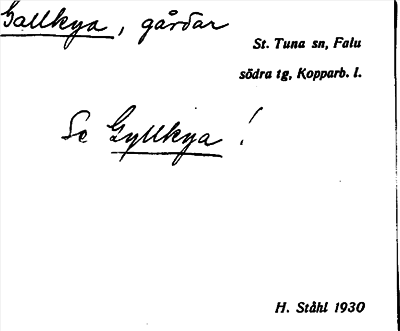 Gallkya, gårdar
St. Tuna sn, Falu
södra tg, Kopparb. l.
Se Gyllkya!
H. Ståhl 1930